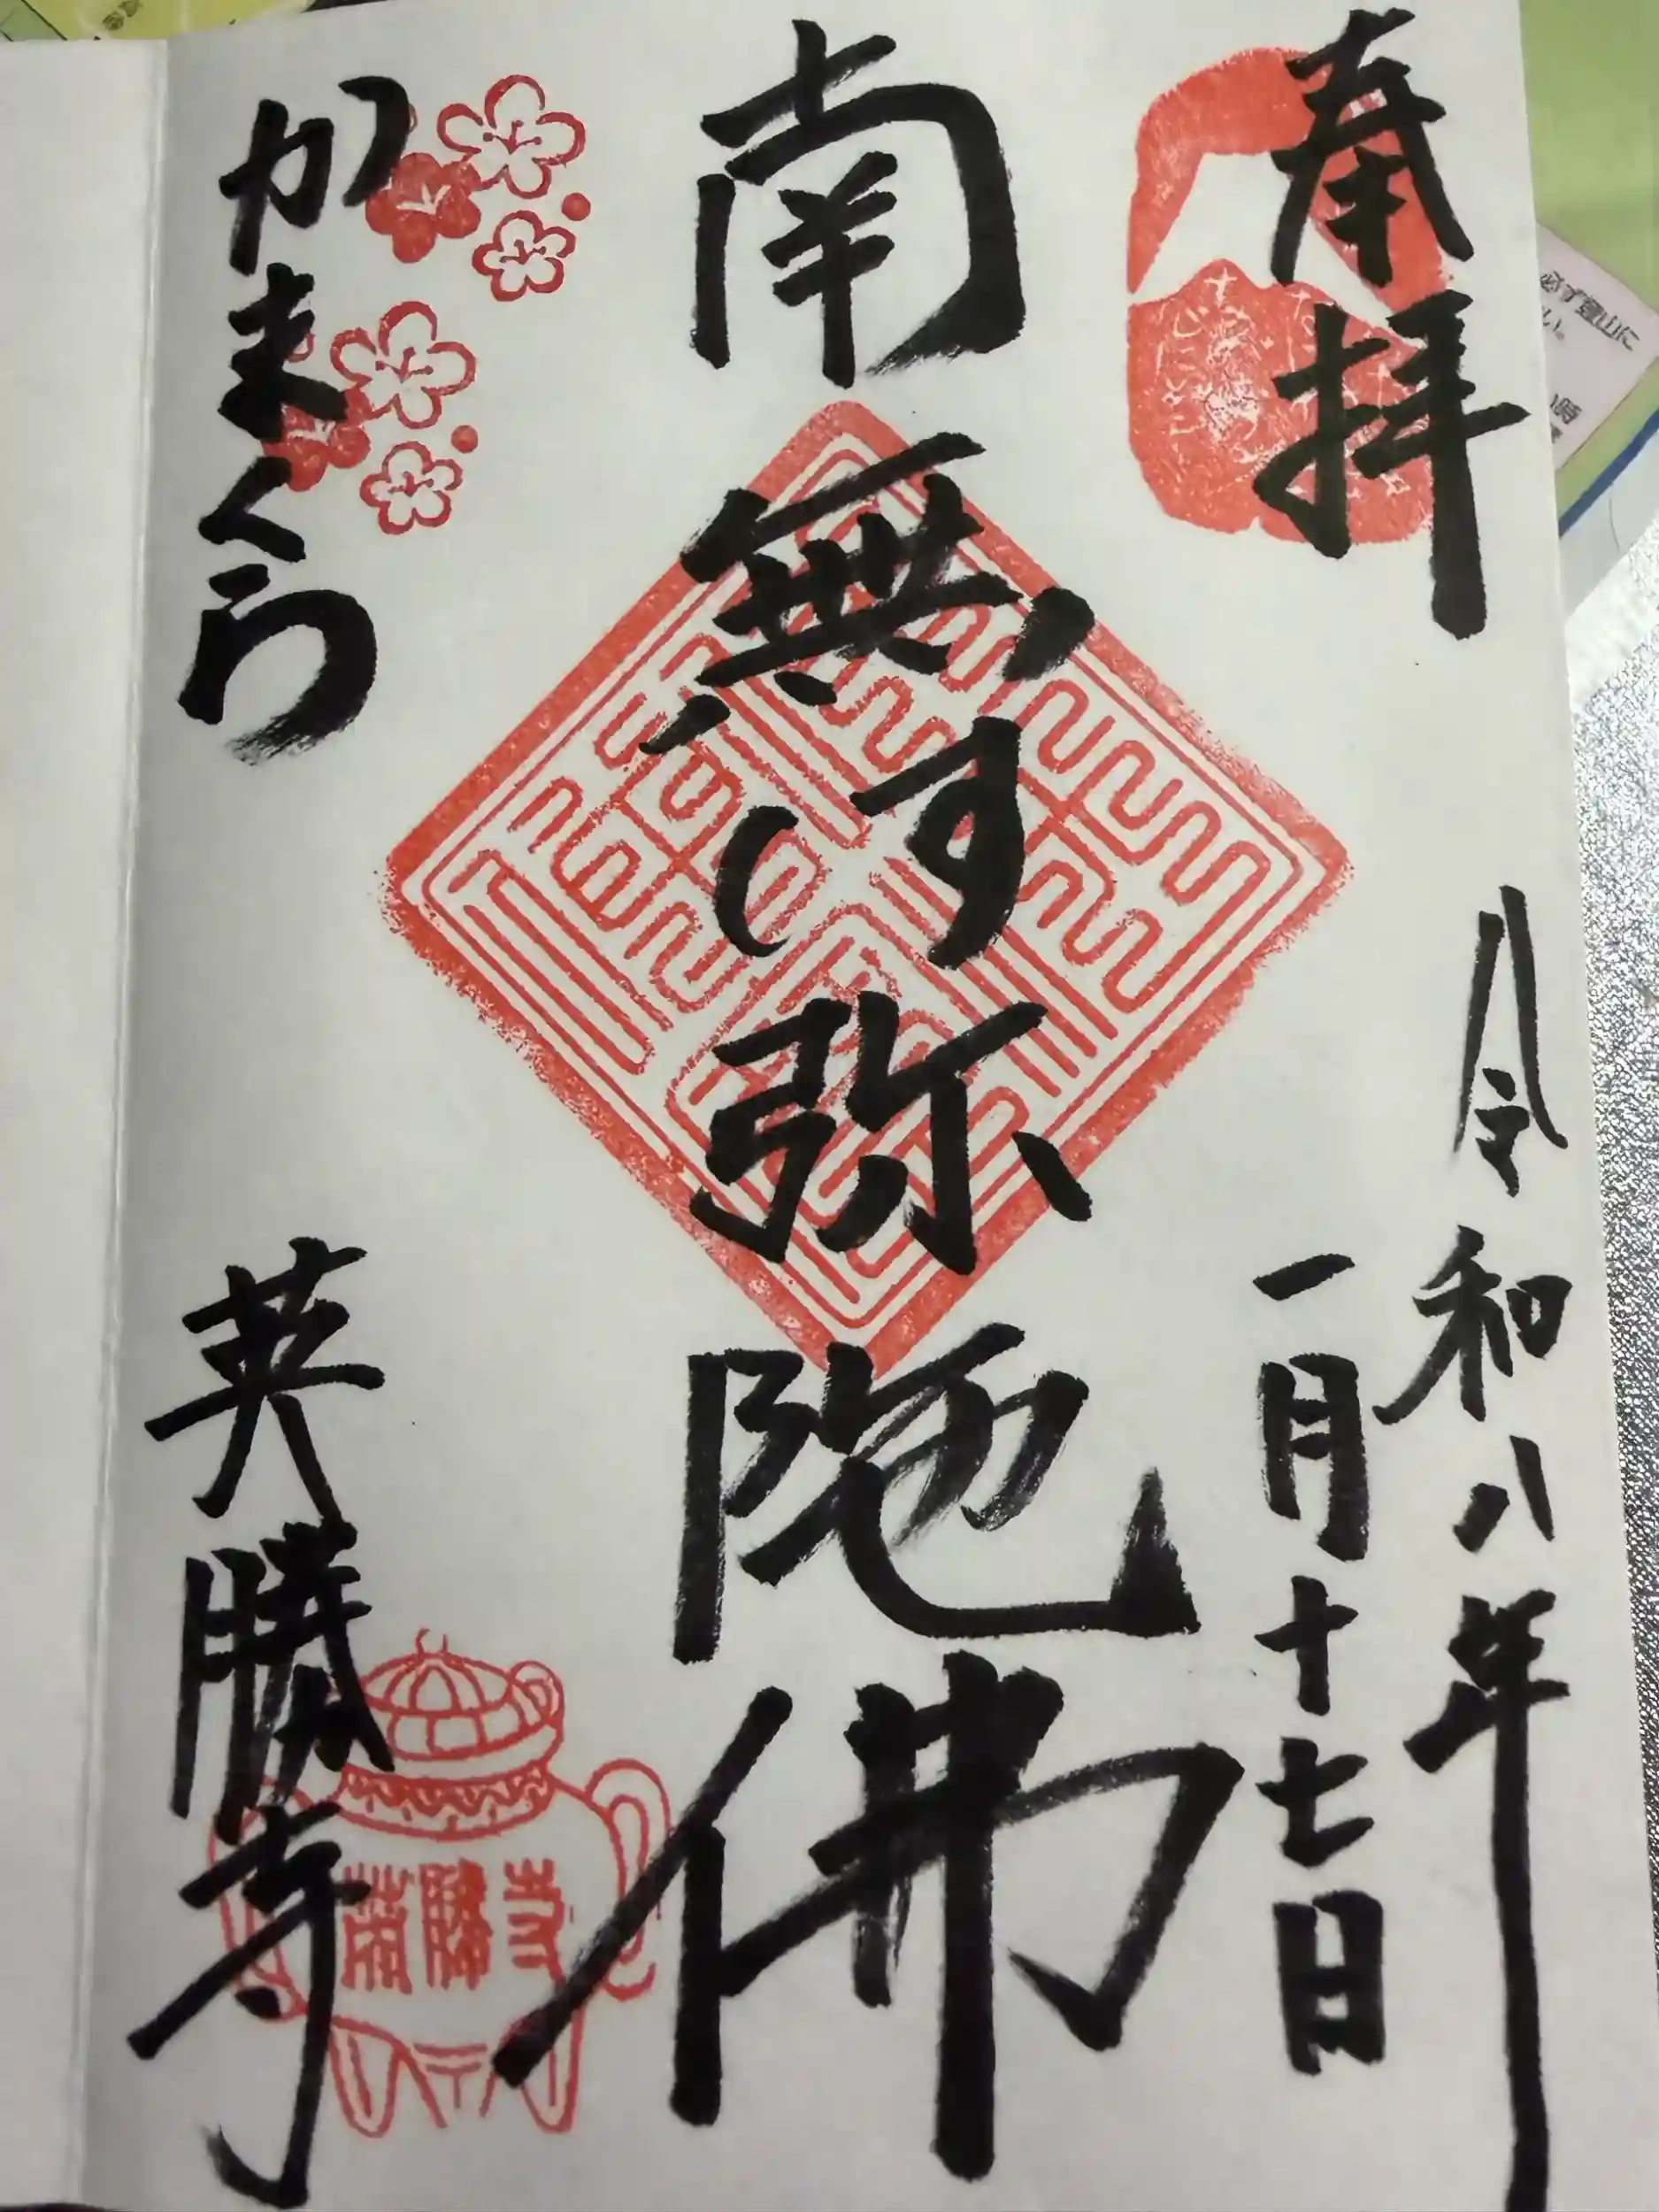 奉拝
令和八年
一月十七日
南無阿弥陀佛
かまくら
英勝寺
英勝寺